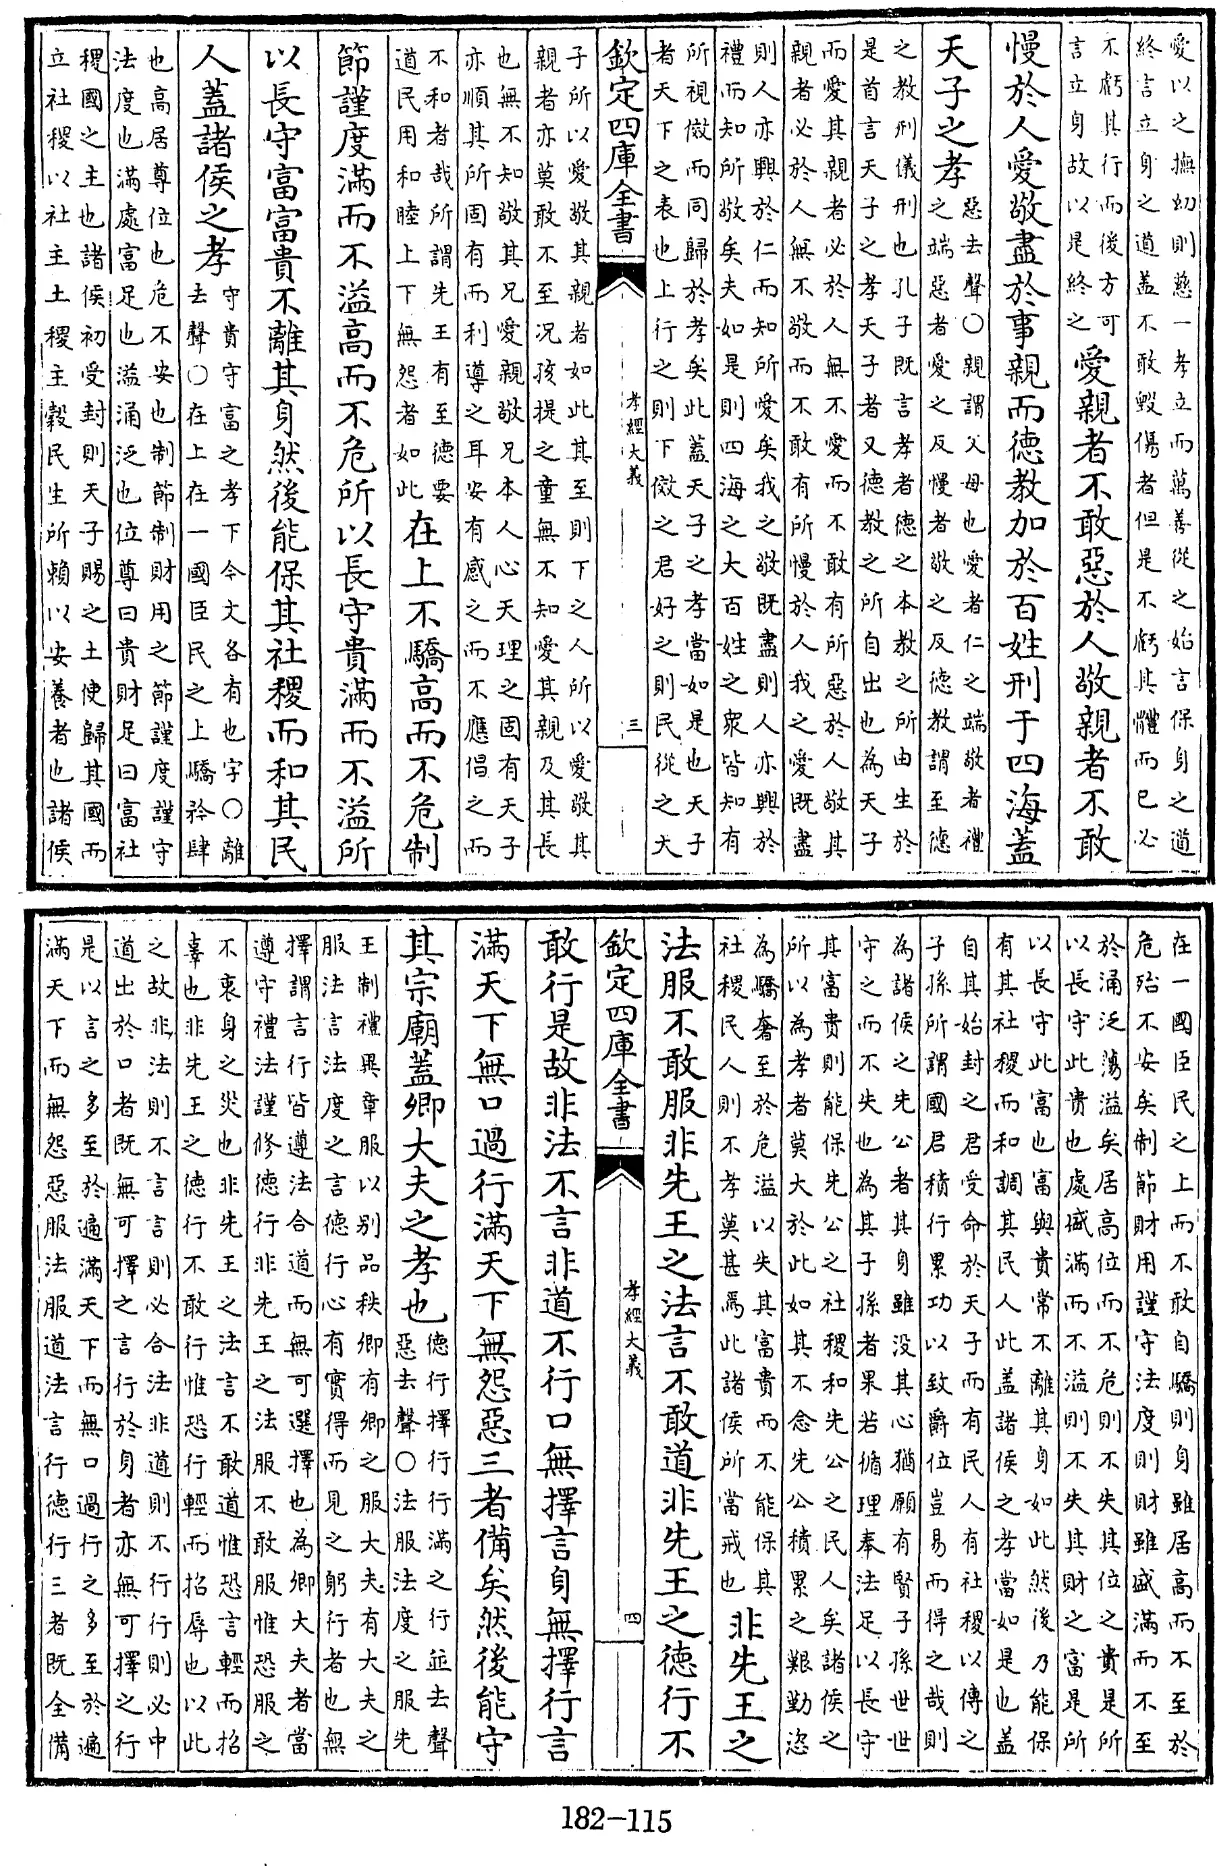 愛以之撫幼則慈一孝立而萬善從之始言保身之道
終言立身之道蓋不敢毀傷者但是不虧其體而已必
不虧其行而後方可
言立身故以是終之
愛親者不敢惡於人敬親者不敢
慢於人愛敬盡於事親而德教加於百姓刑于四海蓋
天子之孝
惡去聲○親謂父母也愛者仁之端敬者禮
之端惡者愛之反慢者敬之反德教謂至德
之教刑儀刑也孔子既言孝者德之本教之所由生於
是首言天子之孝天子者又德教之所自出也為天子
而愛其親者必於人無不愛而不敢有所惡於人敬其
親者必於人無不敬而不敢有所慢於人我之愛既盡
則人亦興於仁而知所愛矣我之敬既盡則人亦興於
禮而知所敬矣夫如是則四海之大百姓之衆皆知有
所視傚而同歸於孝矣此蓋天子之孝當如是也天子
者天下之表也上行之則下傚之君好之則民從之大
欽定四庫全書
孝經大義
三
子所以愛敬其親者如此其至則下之人所以愛敬其
親者亦莫敢不至況孩提之童無不知愛其親及其長
也無不知敬其兄愛親敬兄本人心天理之固有天子
亦順其所固有而利導之耳安有感之而不應倡之而
不和者哉所謂先王有至德要
道民用和睦上下無怨者如此
在上不驕高而不危制
節謹度滿而不溢高而不危所以長守貴滿而不溢所
以長守富富貴不離其身然後能保其社稷而和其民
人蓋諸侯之孝
守貴守富之孝下今文各有也字○離
去聲○在上在一國臣民之上驕矜肆
也高居尊位也危不安也制節制財用之節謹度謹守
法度也滿處富足也溢涌泛也位尊曰貴財足曰富社
稷國之主也諸侯初受封則天子賜之土使歸其國而
立社稷以社主土稷主穀民生所賴以安養者也諸侯
在一國臣民之上而不敢自驕則身雖居高而不至於
危殆不安矣制節財用謹守法度則財雖盛滿而不至
於涌泛蕩溢矣居高位而不危則不失其位之貴是所
以長守此貴也處盛滿而不溢則不失其財之富是所
以長守此富也富與貴常不離其身如此然後乃能保
有其社稷而和調其民人此蓋諸侯之孝當如是也蓋
自其始封之君受命於天子而有民人有社稷以傳之
子孫所謂國君積行累功以致爵位豈易而得之哉則
為諸侯之先公者其身雖没其心猶願有賢子孫世世
守之而不失也為其子孫者果若循理奉法足以長守
其富貴則能保先公之社稷和先公之民人矣諸侯之
所以為孝者莫大於此如其不念先公積累之艱勤恣
為驕奢至於危溢以失其富貴而不能保其
社稷民人則不孝莫甚焉此諸侯所當戒也
非先王之
法服不敢服非先王之法言不敢道非先王之德行不
欽定四庫全書
孝經大義
四
敢行是故非法不言非道不行口無擇言身無擇行言
滿天下無口過行滿天下無怨惡三者備矣然後能守
其宗廟蓋卿大夫之孝也
德行擇行行滿之行並去聲
惡去聲○法服法度之服先
王制禮異章服以别品秩卿有卿之服大夫有大夫之
服法言法度之言德行心有實得而見之躬行者也無
擇謂言行皆遵法合道而無可選擇也為卿大夫者當
遵守禮法謹修德行非先王之法服不敢服惟恐服之
不衷身之災也非先王之法言不敢道惟恐言輕而招
辜也非先王之德行不敢行惟恐行輕而招辱也以此
之故非法則不言言則必合法非道則不行行則必中
道出於口者既無可擇之言行於身者亦無可擇之行
是以言之多至於遍滿天下而無口過行之多至於遍
滿天下而無怨惡服法服道法言行德行三者既全備
182-115